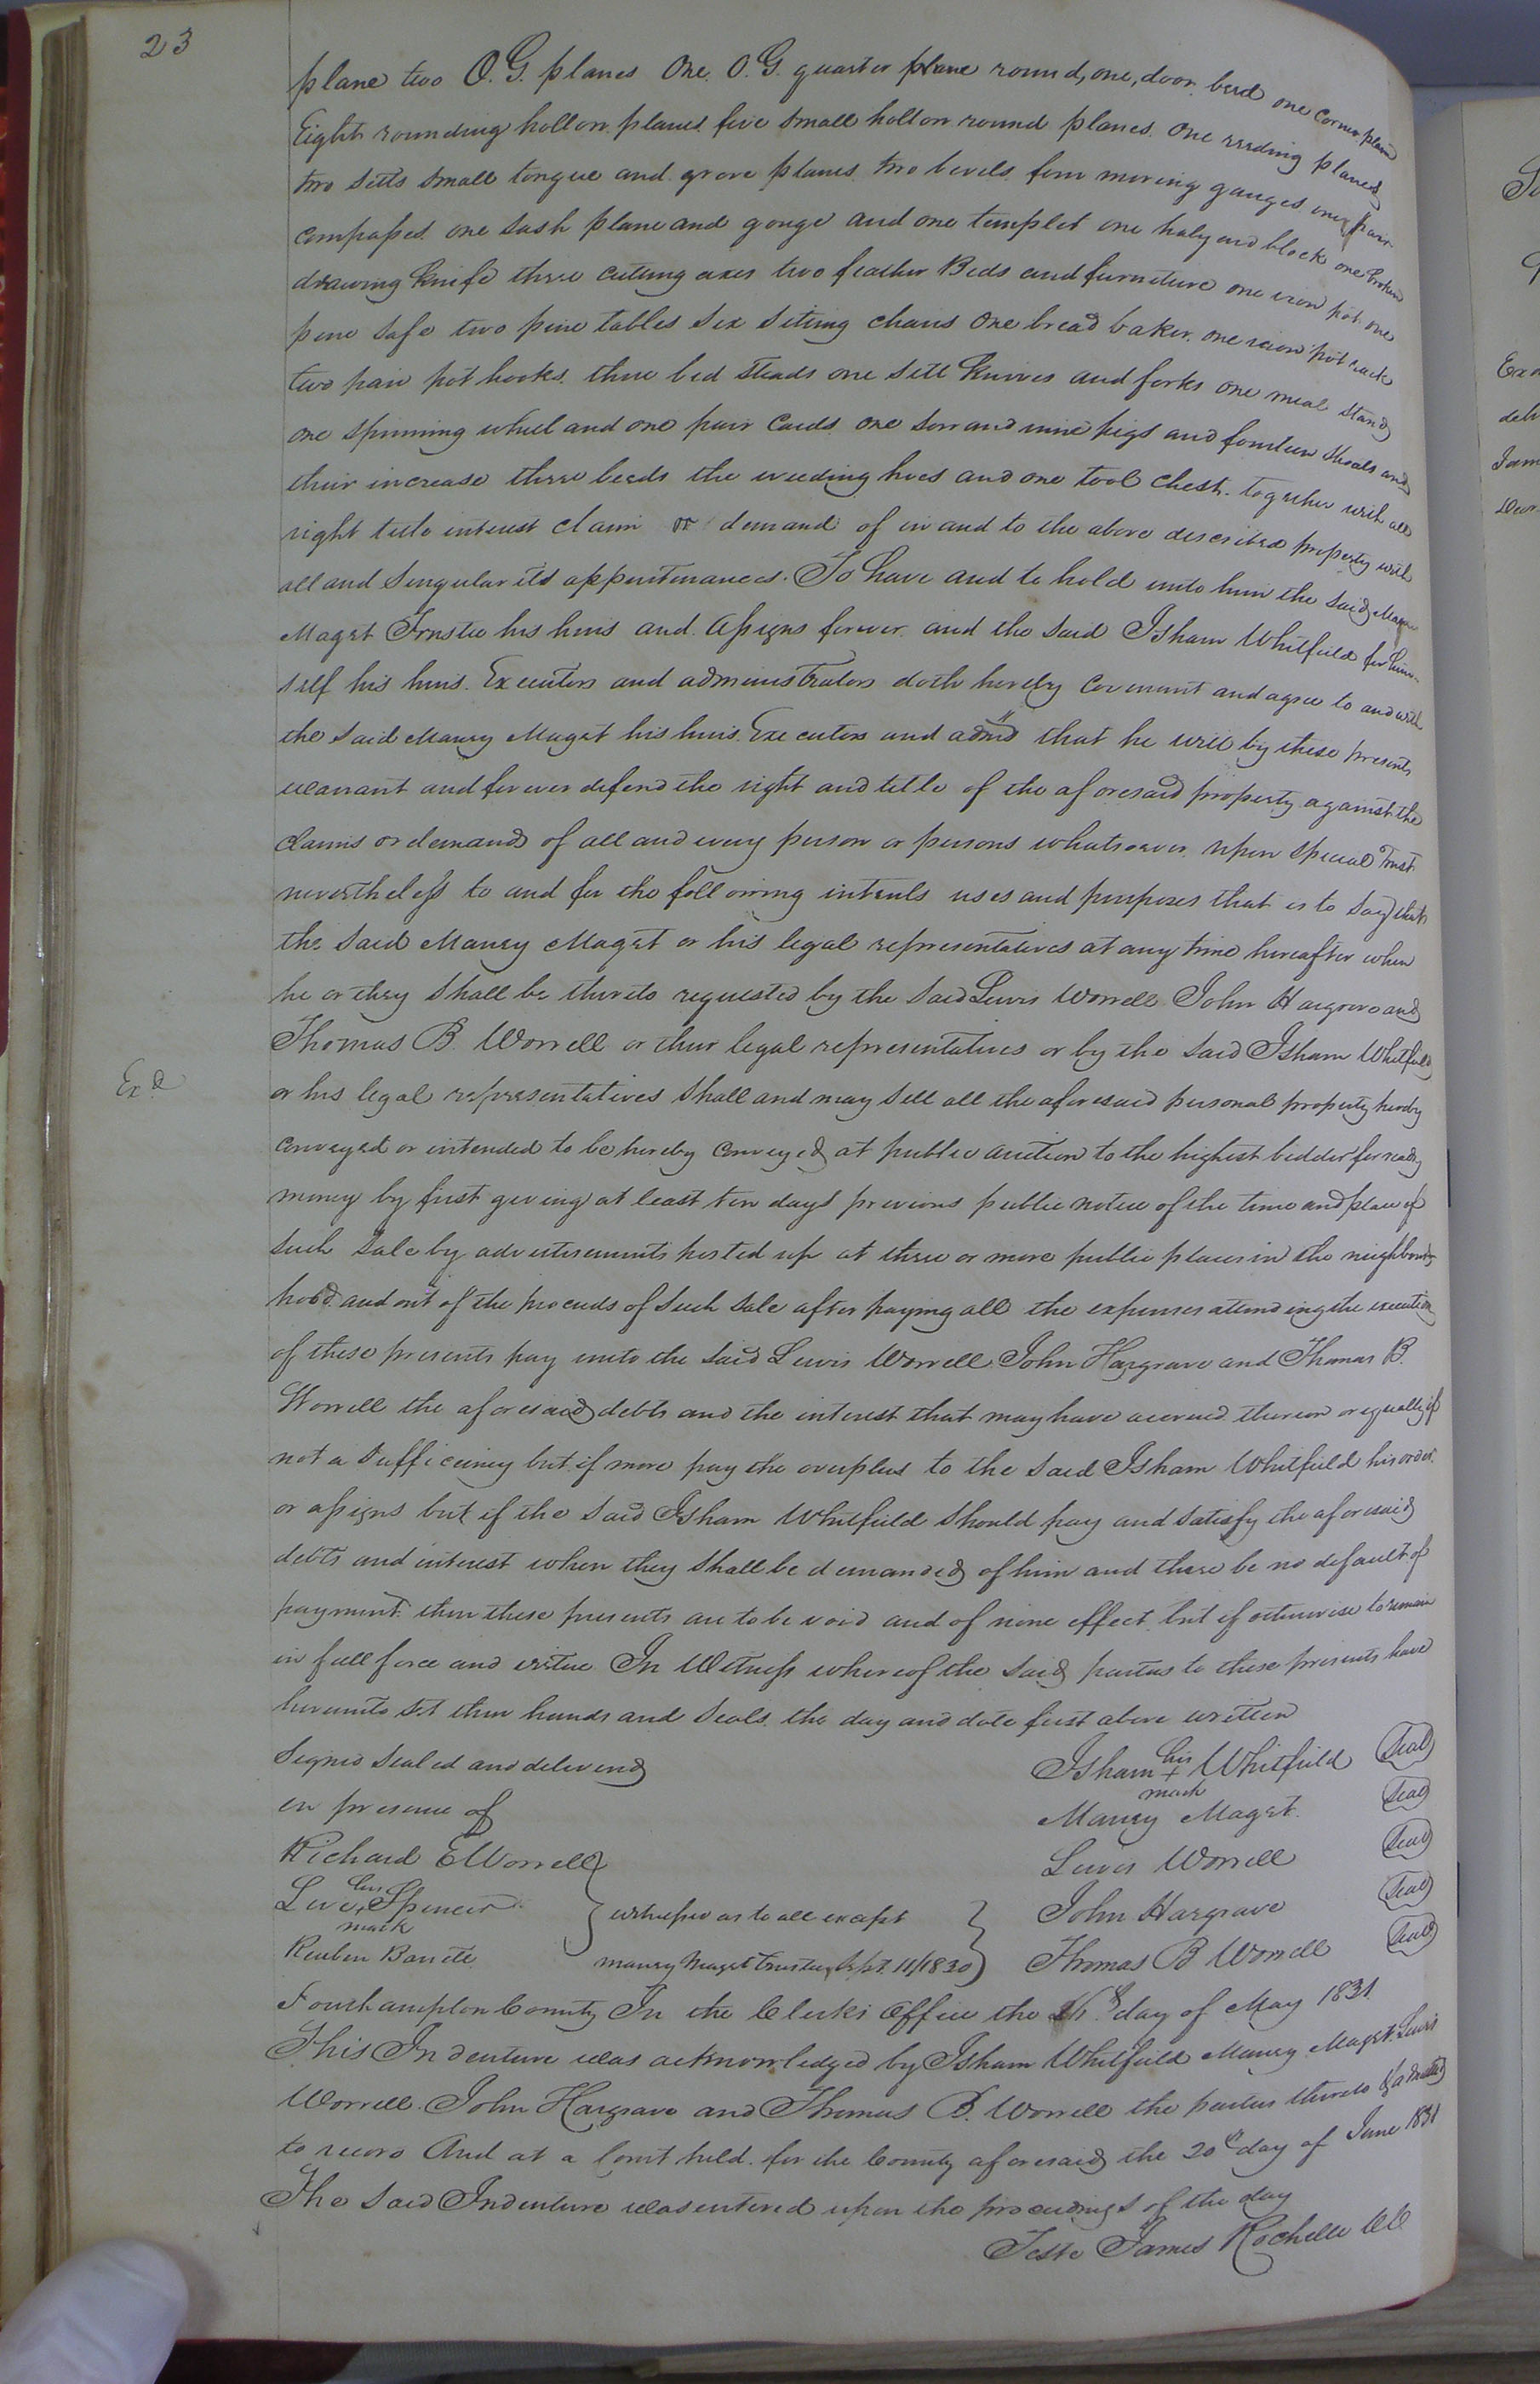 23
plane two O.G. planes One O.G. quarter plane round, one, door bead one corner plane
Eight rounding hollow planes five small hollow round planes. One reeding planes
two setts small tongue and grove planes two bevels four moving gauges one pair
compasses one sash plane and gouge and one templet one halyard block one broken
drawing knife three cuting axes two feather Beds and furniture one iron pot one
pine safe two pine tables six siting chairs One bread baker one iron pot rack
two pair pot hooks three bed steads one sett knives and forks one meal stand
one spinning wheel and one pair cards one sow and nine pigs and fourteen shoals and
their increase three beeds the weeding hoes and one tool chest. together with all
right title interest claim or demand of in and to the above described property with
all and Singular its appurtenances. To have and to hold unto him the said
Maget Trustee his heirs and Assigns forever and the said Isham Whitfield for him-
self his heirs Executors and administrators doth hereby Covenant and agree to and with
the said Maury Maget his heirs Executors and admrs that he will by these presents
warrant and forever defend the right and title of the aforesaid property against the
claims or demands of all and every person or persons whatsoever upon special Trust
nevertheless to and for the following intents uses and purposes that is to say that
the said Maury Maget or his legal representatives at any time hereafter when
he or they shall be thereto requested by the said Lewis Worrell John Hargrave and
Thomas B. Worrell or their legal representatives or by the said Isham Whitfield
Exd
or his legal representatives shall and may sell all the aforesaid personal property hereby
conveyed or intended to be hereby conveyed at public auction to the highest bidder for ready
money by first giving at least ten days previous public notice of the time and place of
such sale by advertisements posted up at three or more public places in the neighbour-
hood and out of the proceeds of such sale after paying all the expenses attending the execution
of these presents pay unto the said Lewis Worrell John Hargrave and Thomas B.
Worrell the aforesaid debts and the interest that may have accrued thereon or equally if
not a sufficiency but if more pay the overplus to the said Isham Whitfield his order
or assigns but if the said Isham Whitfield should pay and satisfy the aforesaid
debts and interest when they shall be demanded of him and there be no default of
payment then these presents are to be void and of none effect but if otherwise to remain
in full force and virtue In Witness whereof the said parties to these presents have
hereunto set their hands and seals the day and date first above written
Signed Sealed and delivered
in presence of
Richard E Worrell
his
Spencer
mark
Reuben Barrett
witnesses as to all except
maury Maget trustee, Sept. 11/1830
Isham his + Whitfield Seal
mark
Maury Maget. Seal
Lewis Worrell Seal
John Hargrave Seal
Thomas B Worrell Seal
Southampton County In the Clerks Office the day of May 1831
This Indenture was acknowledged by Isham Whitfield Maury Maget Lewis
Worrell. John Hargrave and Thomas B. Worrell the parties thereto & admitted
to record And at a Court held for the County aforesaid the 20th day of June 1831
The said Indenture was entered upon the proceedings of the day
Teste James Rochelle CC